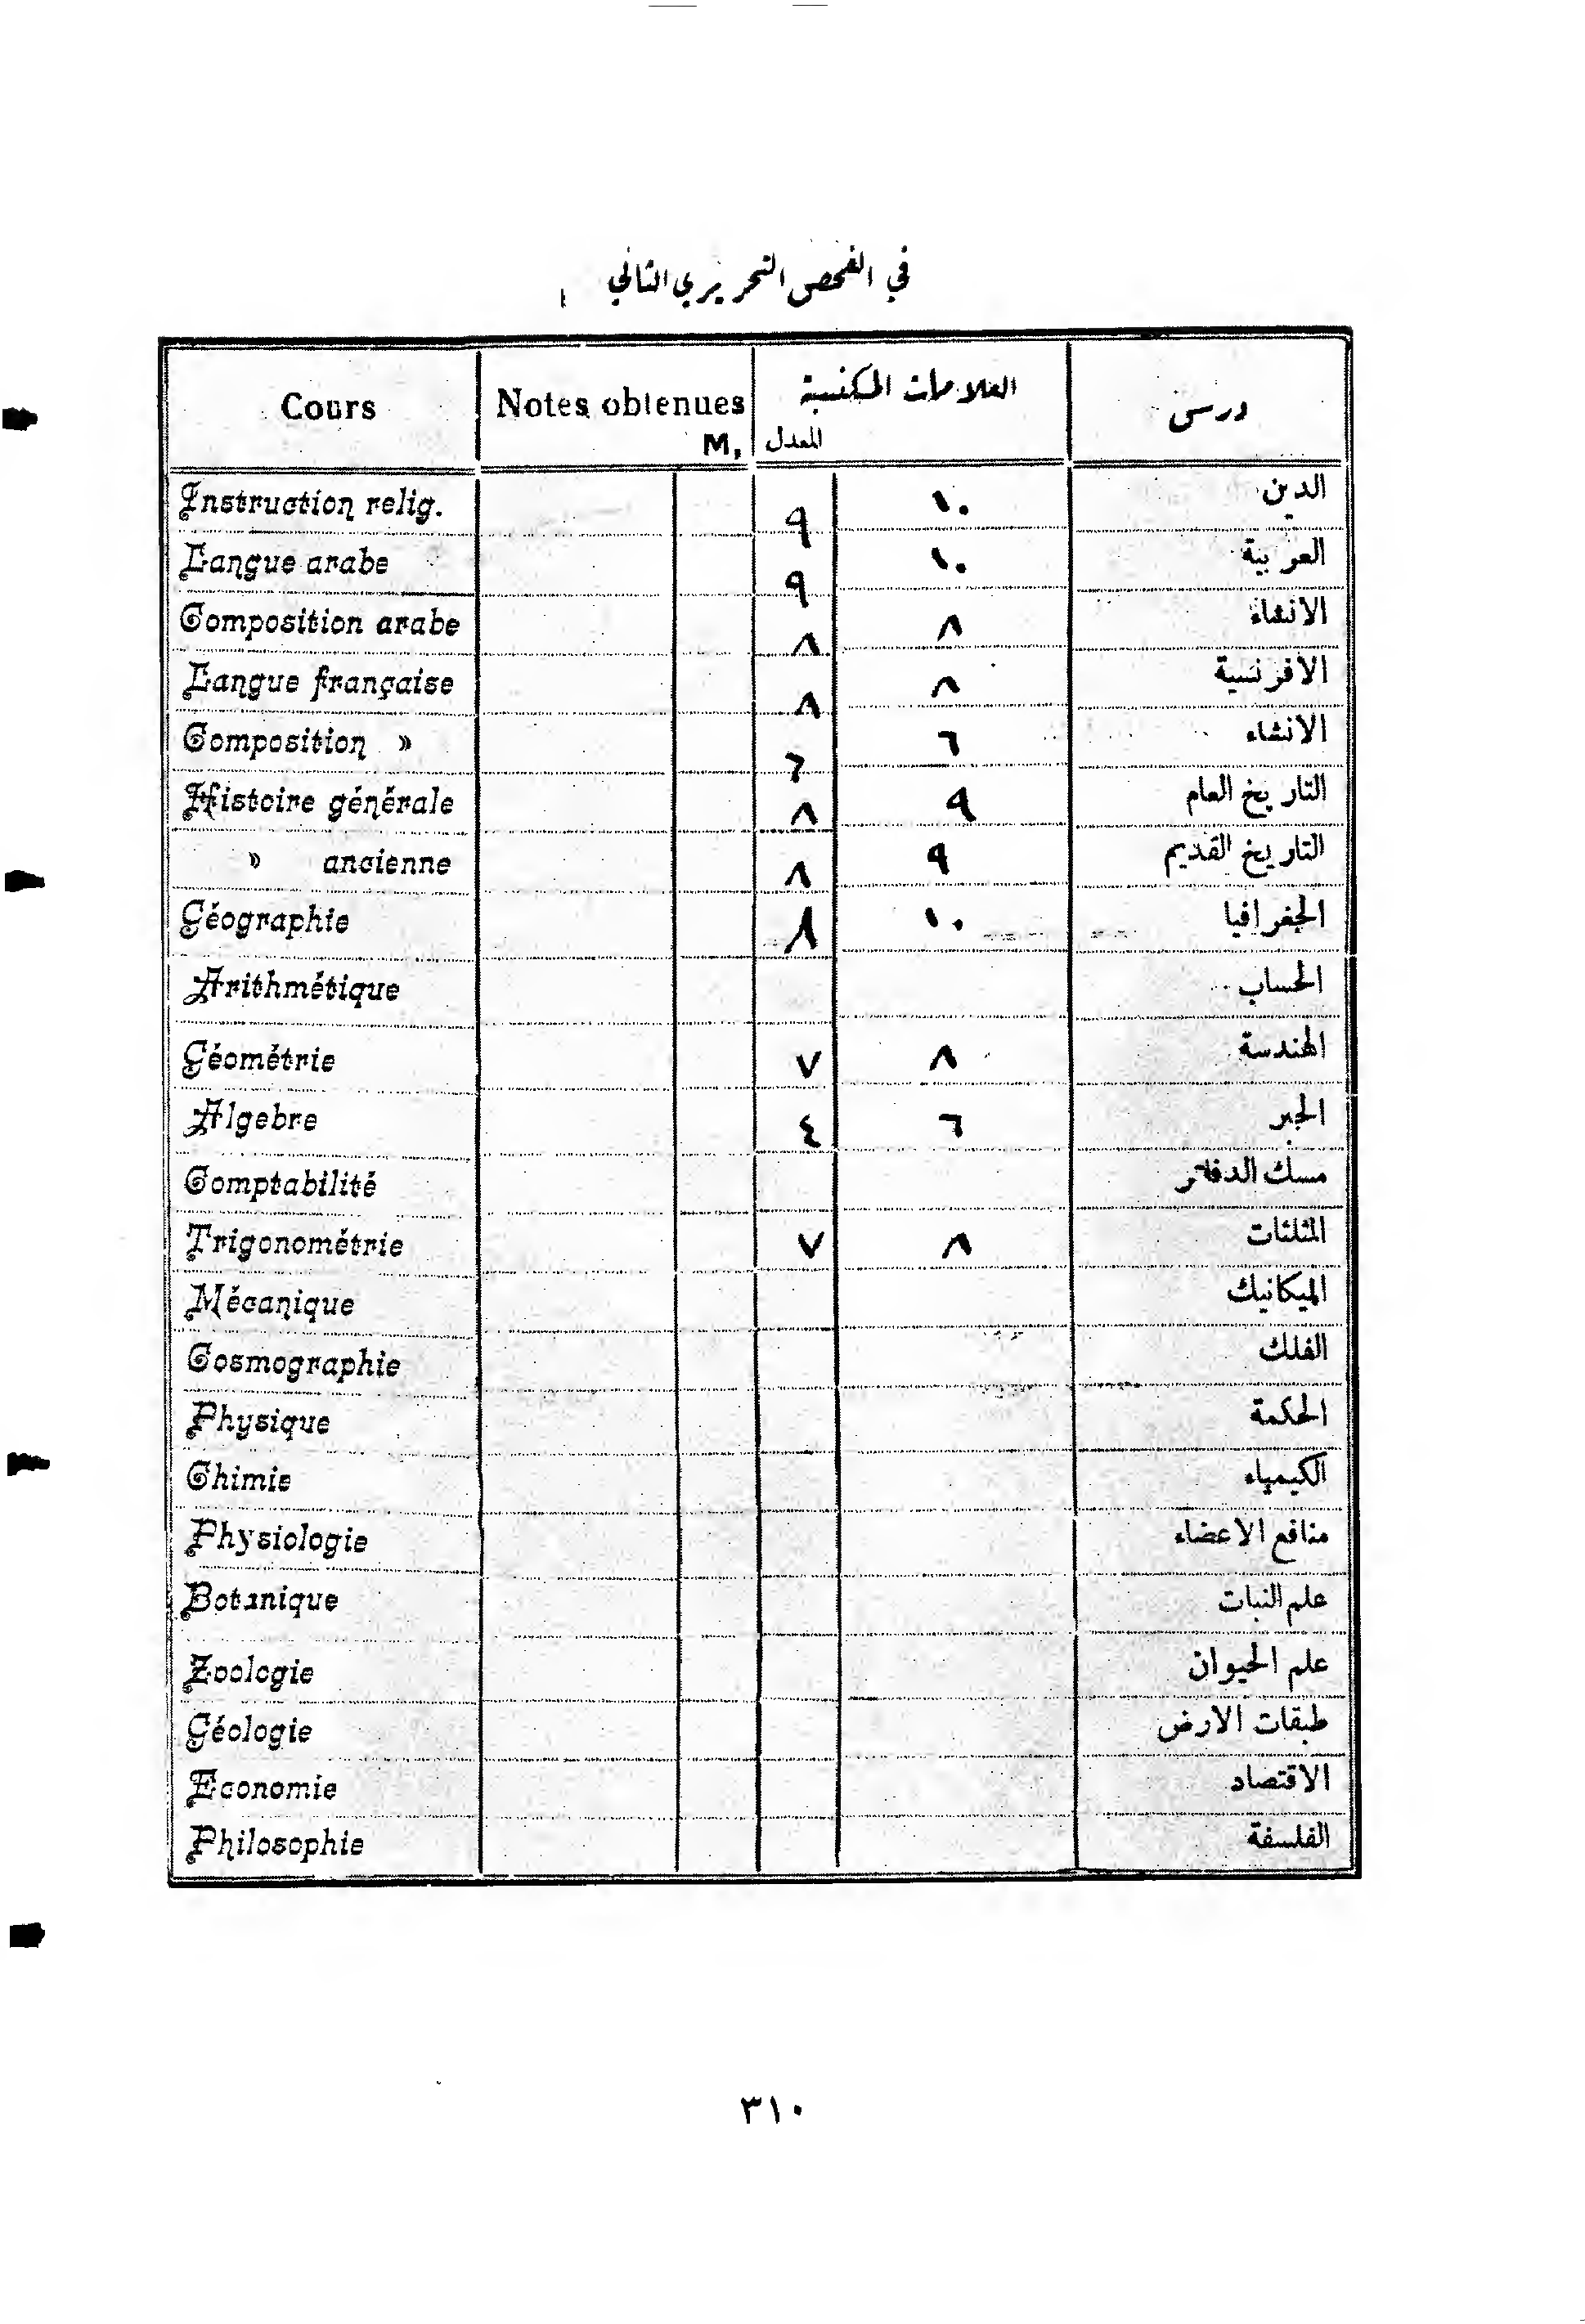 في الفحص التحريري الثاني
Cours Notes obtenues العلامات المكتسبة درس
M, المعدل
Instruction relig. ٩ ١٠ الدين
Langue arabe ٩ ١٠ العربية
Composition arabe ٨ ٨ الانشاء
Langue française ٨ ٨ الأفرنسية
Composition » ٦ ٦ الانشاء
Histoire générale ٨ ٩ التاريخ العام
» ancienne ٨ ٩ التاريخ القديم
Géographie ٨ ١٠ الجغرافيا
Arithmétique الحساب
Géométrie ٧ ٨ الهندسة
Algebre ٤ ٦ الجبر
Comptabilité مسك الدفاتر
Trigonométrie ٧ ٨ المثلثات
Mécanique الميكانيك
Cosmographie الفلك
Physique الحكمة
Chimie الكيمياء
Physiologie منافع الاعضاء
Botanique علم النبات
Zoologie علم الحيوان
Géologie طبقات الارض
Economie الاقتصاد
Philosophie الفلسفة
٣١٠